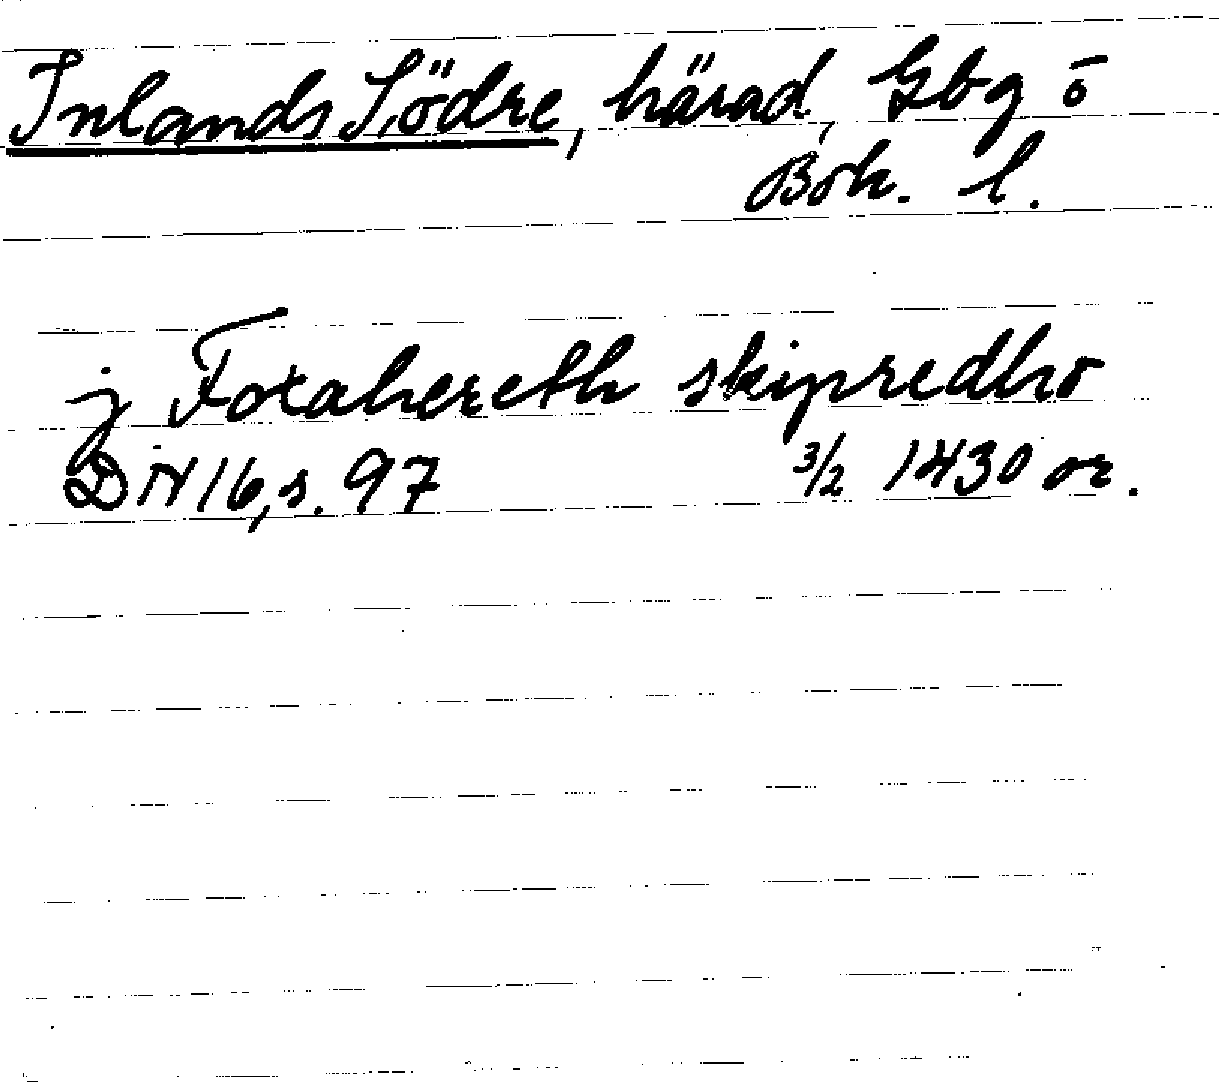 Inlands Södre, härad, Gbg ō
Boh. l.
j Foxahereth skipredho
DN 16, s. 97 3/2 1430 or.